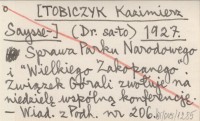 [TOBICZYK Kazimierz
Saysse-] (Dr. sato) 1927.
Sprawa Parku Narodowego
i "Wielkiego Zakopanego".
Związek Górali zwołuje na
niedzielę wspólną konferencję.
– Wiad. z Podh. nr 206.